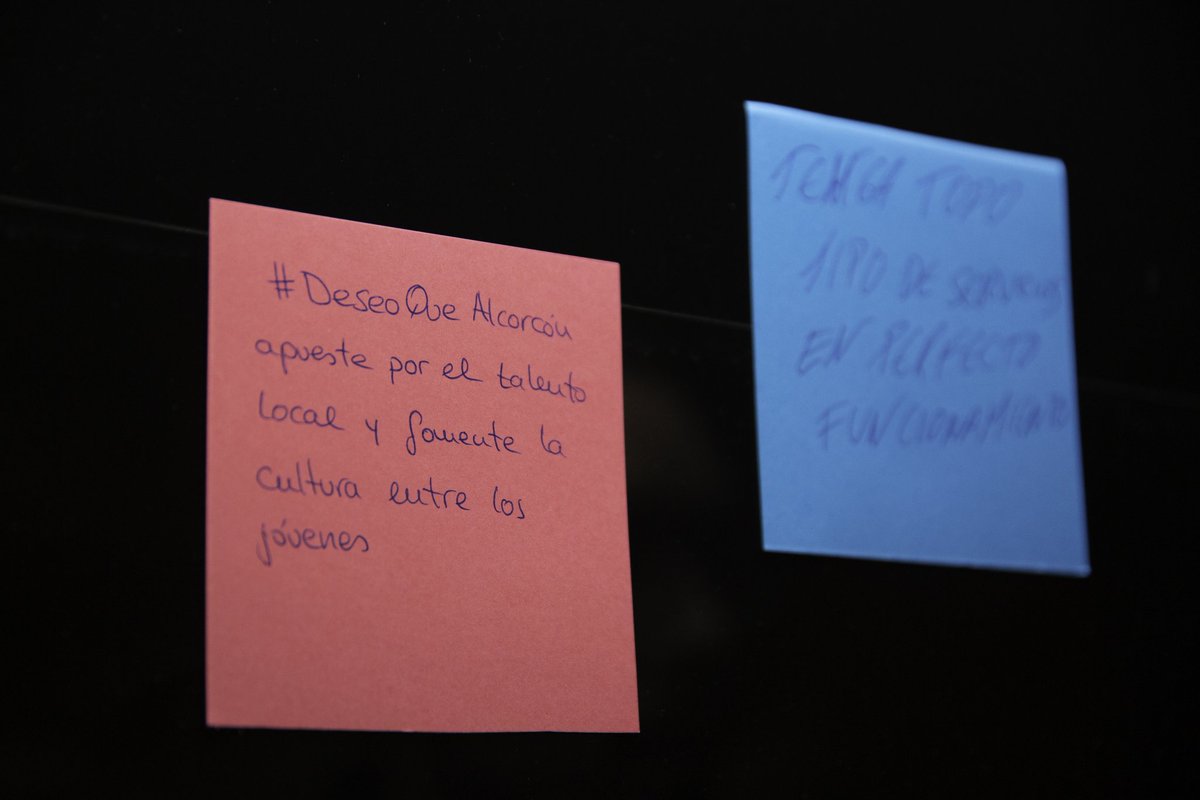 #DeseoQue Alcorcón
apueste por el talento
local y fomente la
cultura entre los
jóvenes
TENGA TODO
TIPO DE SERVICIOS
EN PERFECTO
FUNCIONAMIENTO